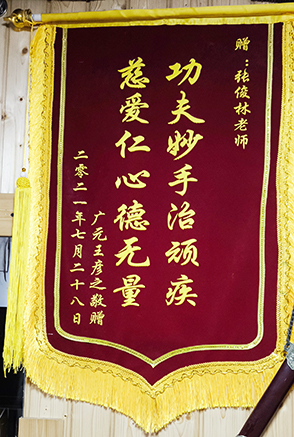 赠：张俊林老师
功夫妙手治顽疾
慈爱仁心德无量
广元王彦之敬赠
二零二一年七月二十八日